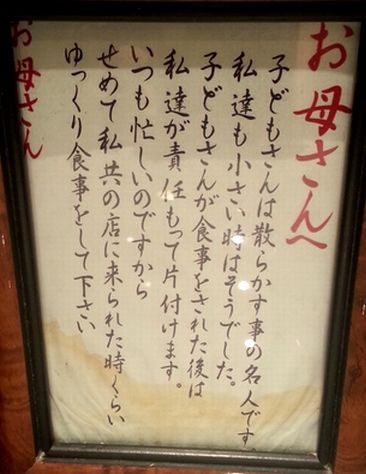 お母さんへ
子どもさんは散らかす事の名人です。
私達も小さい時はそうでした。
子どもさんが食事をされた後は
私達が責任もって片付けます。
いつも忙しいのですから
せめて私共の店に来られた時くらい
ゆっくり食事をして下さい
お母さん